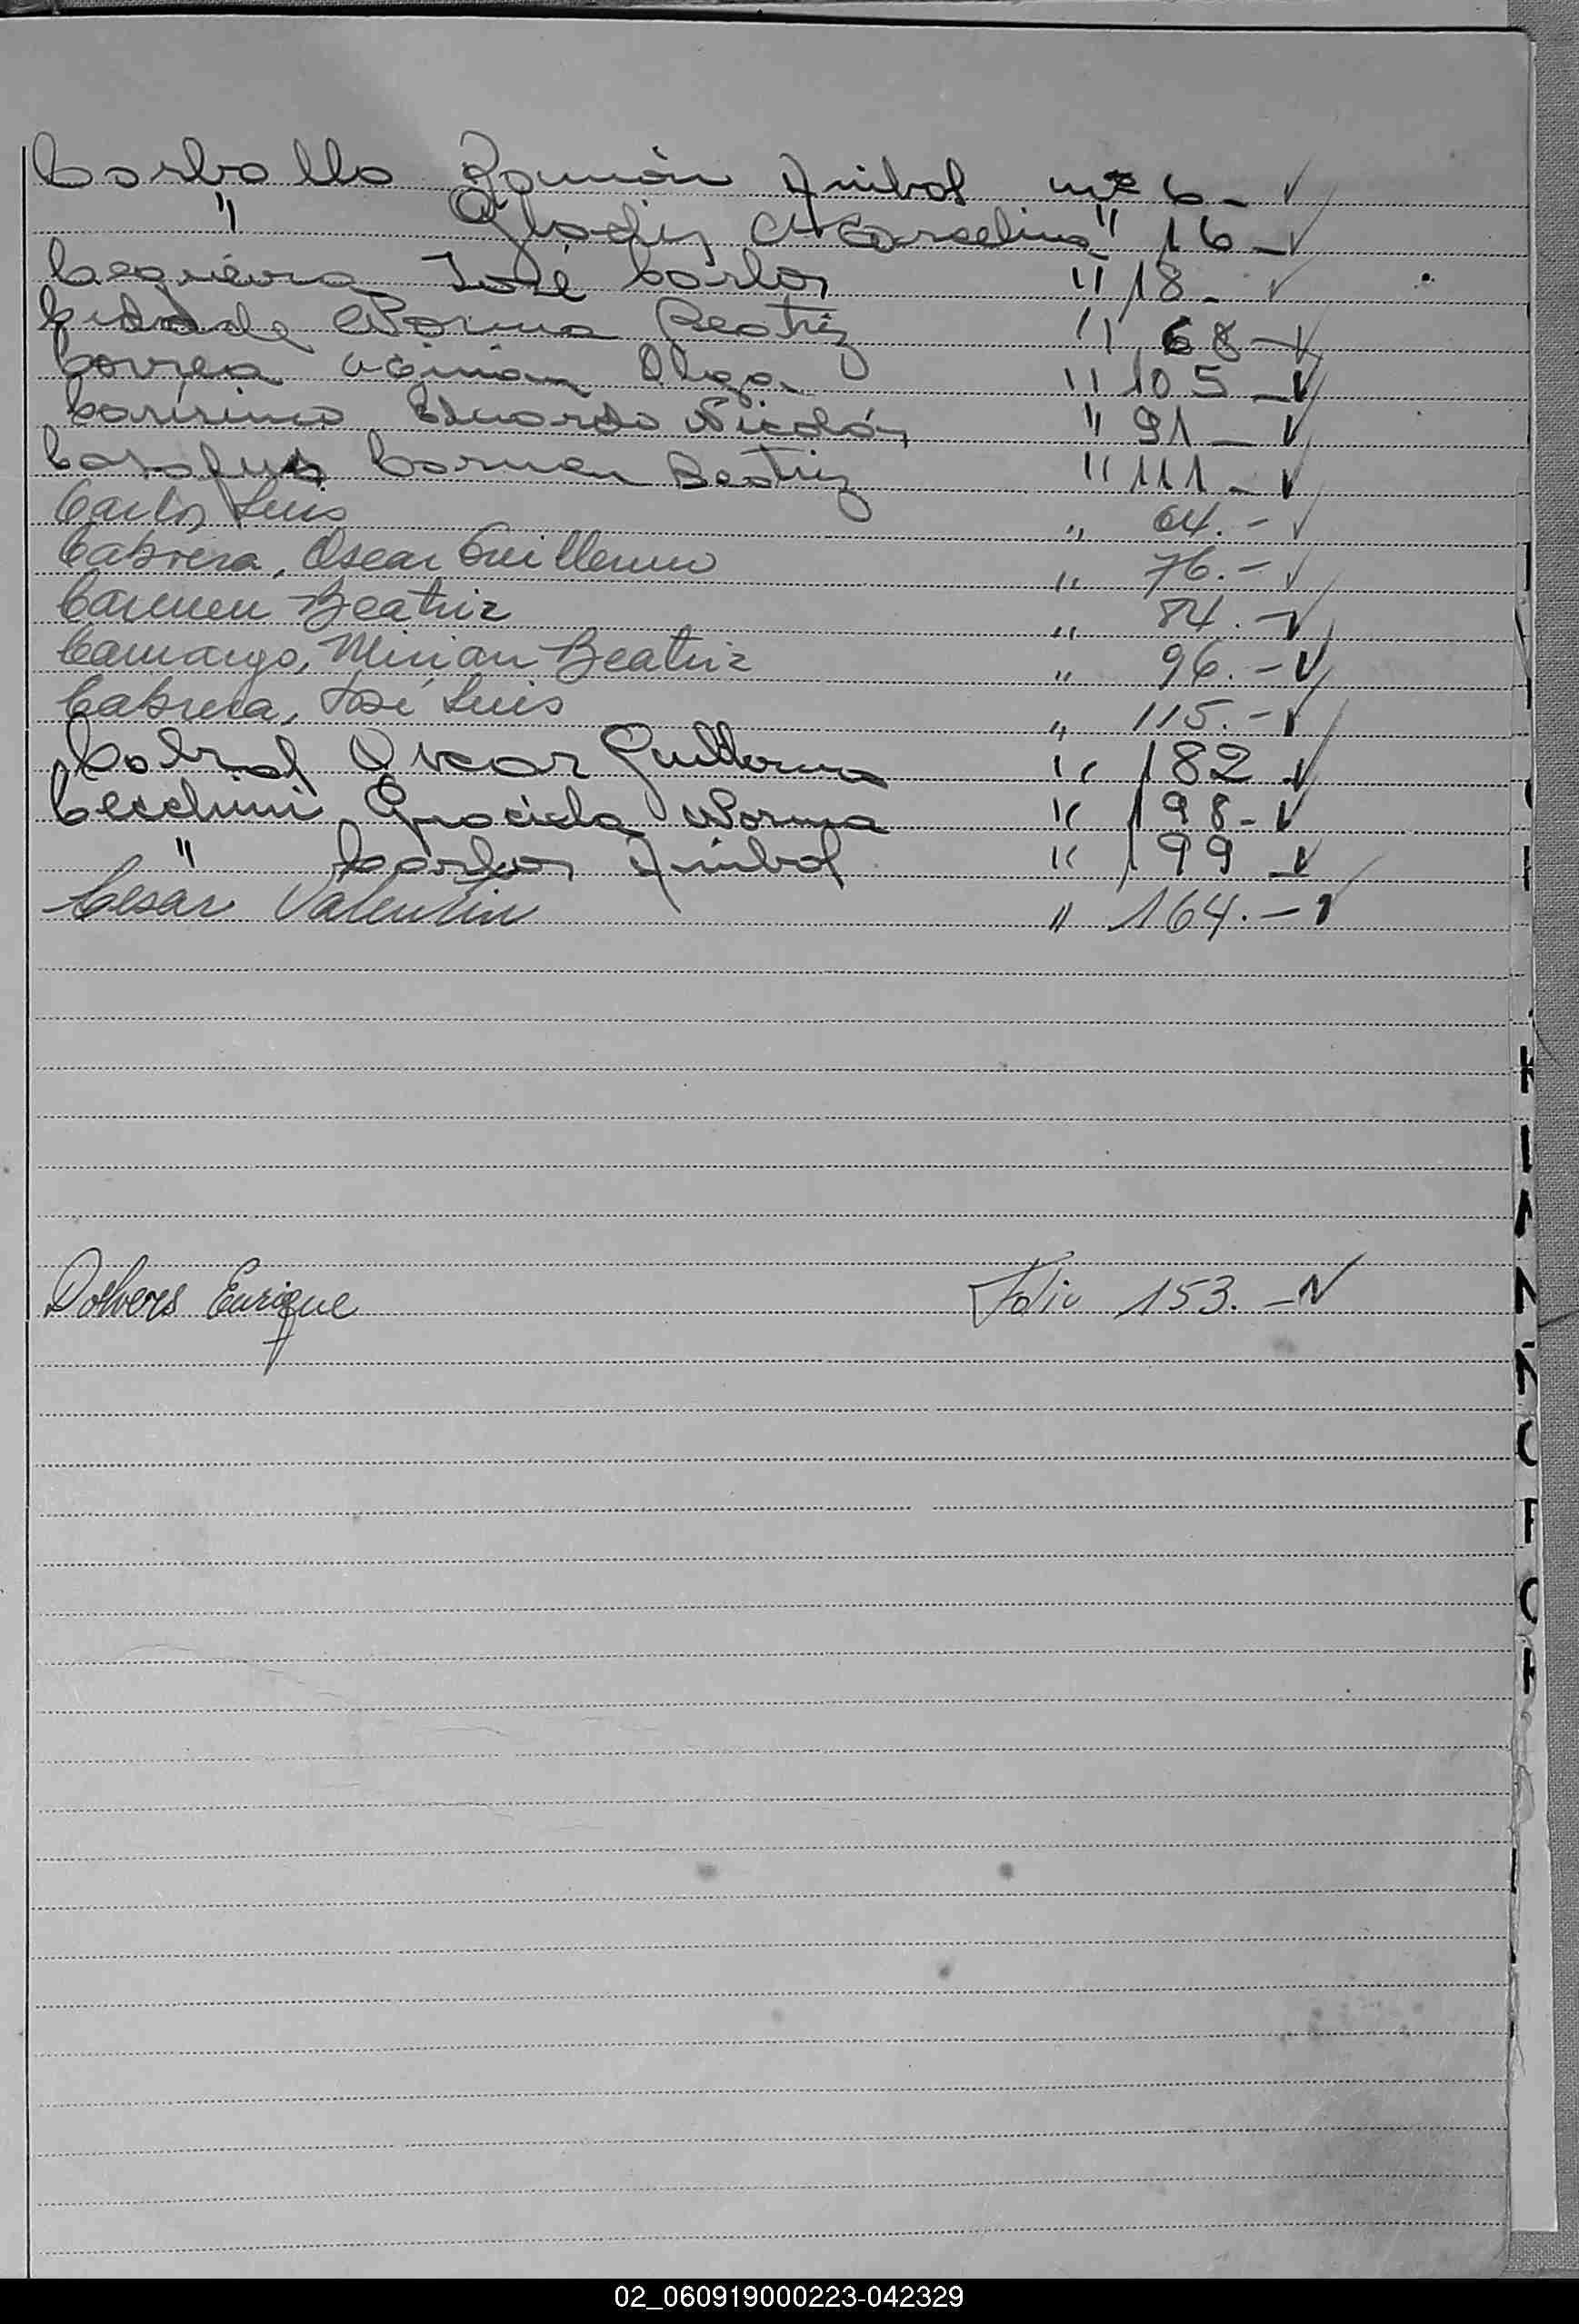 Carballo Ramón Anibal nº 6 - ✓
" Gladis Marcelina " 16 - ✓
Cequieira José Carlos " 18 - ✓
Norma Beatriz " 68 - ✓
Correa Mirian Olga " 105 - ✓
Eduardo Nicolás " 91 - ✓
Carmen Beatriz " 111 - ✓
Carlos Luis " 64. - ✓
Cabrera, Oscar Guillermo " 76. - ✓
Carmen Beatriz " 84. - ✓
Camargo, Mirian Beatriz " 96. - ✓
Cabrera, José Luis " 115. - ✓
Cabral Oscar Guillermo " 182 - ✓
Cecchini Graciela Norma " 198 - ✓
" Carlos Anibal " 199 - ✓
Cesar Valentin " 164. - ✓
Enrique Folio 153. - ✓
02_060919000223-042329